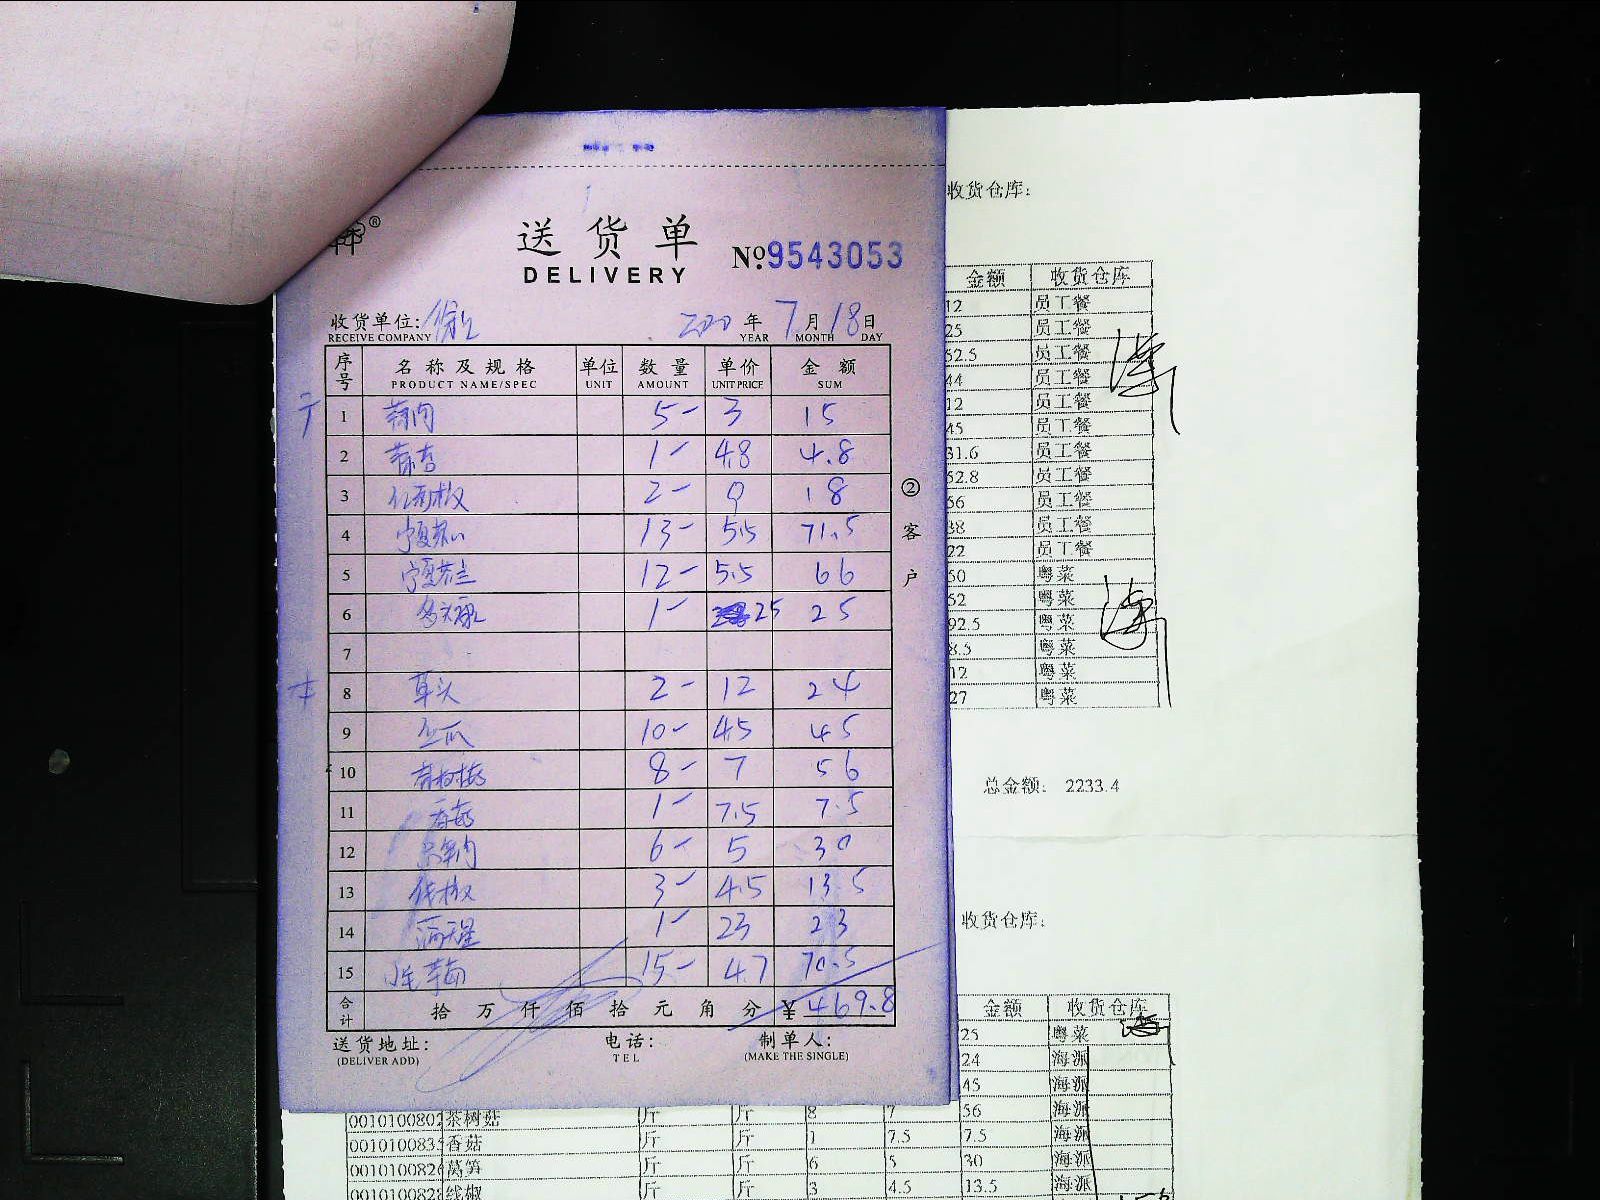 送货单
DELIVERY
№9543053
收货单位:
RECEIVE COMPANY
年 7 月 18 日
YEAR MONTH DAY
序号 名称及规格 单位 数量 单价 金额
PRODUCT NAME/SPEC UNIT AMOUNT UNIT PRICE SUM
1 5- 3 15
2 1- 4.8 4.8
3 2- 9 18
4 13- 5.5 71.5
5 12- 5.5 66
6 1- 25 25
7
8 草头 2- 12 24
9 10- 4.5 45
10 8- 7 56
11 香菇 1- 7.5 7.5
12 6- 5 30
13 线椒 3- 4.5 13.5
14 1- 23 23
15 15- 4.7 70.5
合计 拾 万 仟 佰 拾 元 角 分 ¥ 469.8
送货地址: 电话: 制单人:
(DELIVER ADD) TEL (MAKE THE SINGLE)
② 客户
收货仓库:
金额 收货仓库
12 员工餐
25 员工餐
52.5 员工餐
44 员工餐
12 员工餐
45 员工餐
31.6 员工餐
52.8 员工餐
56 员工餐
38 员工餐
22 员工餐
50 粤菜
52 粤菜
92.5 粤菜
8.5 粤菜
12 粤菜
27 粤菜
总金额: 2233.4
收货仓库:
金额 收货仓库
25 粤菜
24 海派
45 海派
0010100802 茶树菇 斤 斤 8 7 56 海派
001010083 香菇 斤 斤 1 7.5 7.5 海派
001010082 莴笋 斤 斤 6 5 30 海派
001010082 线椒 斤 斤 3 4.5 13.5 海派